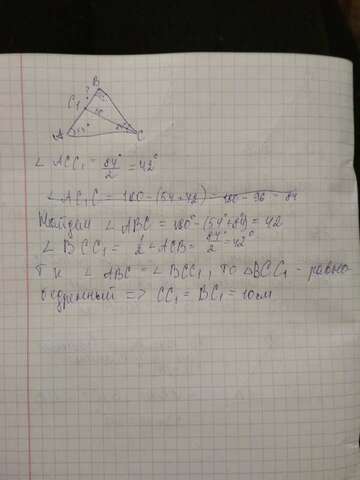 B
?
C₁
10
A
54°
84°
C
∠ ACC₁ = 84°/2 = 42°
∠ AC₁C = 180 - (54+42) = 180 - 96 = 84
Найдем ∠ ABC = 180° - (54°+84°) = 42
∠ BCC₁ = 1/2 ∠ ACB = 84°/2 = 42°
Т.к ∠ ABC = ∠ BCC₁, то △BCC₁ - равно-
бедренный => CC₁ = BC₁ = 10см